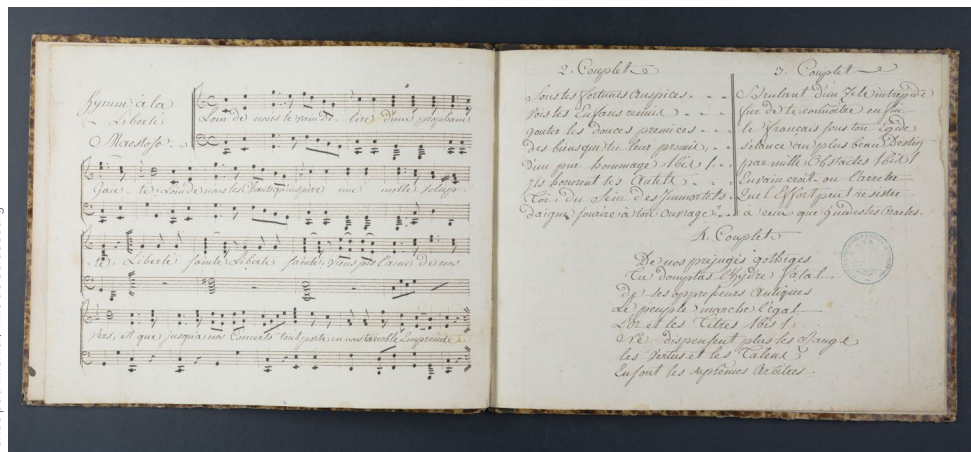 hymne à la
Liberté
Maestoso.
Loin de nous le vain dé lire d'une prophane
Gaie - té, Loin de nous les Chants qu'inspire une molle volup-
té, Liberté sainte Liberté sainte, viens sois l'ame de nos
vers, Et que jusqu'a nos Concerts tout porte en nous ta noble Empreinte.
2. Couplet
Sous tes fortunés Auspices
Vois tes Enfans réunis
gouter les douces premices
des biens que tu leur promis,
d'un pur hommage (bis)
Ils honorent tes Autels
Toi, du Sein des Immortels
daigne sourire à ton ouvrage
3. Couplet
Brulant d'un Zele intrepide
fier de te connoitre enfin
le français sous ton Egide
s'élance au plus beau Destin
par mille Obstacles (bis)
En vain croit-on l'arreter
Quel Effort peut résister
a ceux que guident tes Oracles.
4. Couplet
De nos préjugés gothiges
Tu domptas l'hydre fatal
De ses oppresseurs Antiques
Le peuple marche l'égal
L'or et les Titres (bis)
Ne dispensent plus les Rangs
les Vertus et les Talens
En font les suprêmes Arbitres.